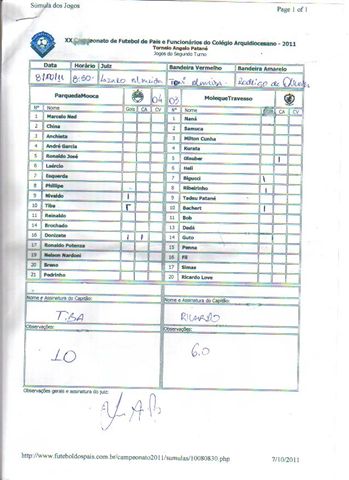 Súmula dos Jogos
Page 1 of 1
XX Campeonato de Futebol de Pais e Funcionários do Colégio Arquidiocesano - 2011
Torneio Angelo Patané
Jogos do Segundo Turno
Data Horário Juiz Bandeira Vermelho Bandeira Amarelo
8:30
ParquedaMooca 04 03 MolequeTravesso
Nº Nome Gols CA CV Nº Nome Gols CA CV
1 Marcelo Ned 1 Naná
2 China 2 Samuca
3 Anchieta 3 Milton Cunha
4 André Garcia 4 Kurata
5 Ronaldo José 5 Glauber
6 Laércio 6 Heli
7 Esquerda 7 Bigucci
8 Phillipe 8 Ribeirinho
9 Nivaldo 9 Tadeu Patané
10 Tiba 10 Bachert
11 Reinaldo 11 Bob
14 Brochado 13 Dadá
16 Donizete 14 Guto
17 Ronaldo Potenza 15 Penna
19 Nelson Nardoni 16 Fil
20 Breno 17 Simas
21 Pedrinho 20 Ricardo Love
Nome e Assinatura do Capitão: Nome e Assinatura do Capitão:
TIBA RICARDO
Observações: Observações:
10 6.0
Observações gerais e assinatura do juiz:
http://www.futeboldospais.com.br/campeonato2011/sumulas/10080830.php 7/10/2011